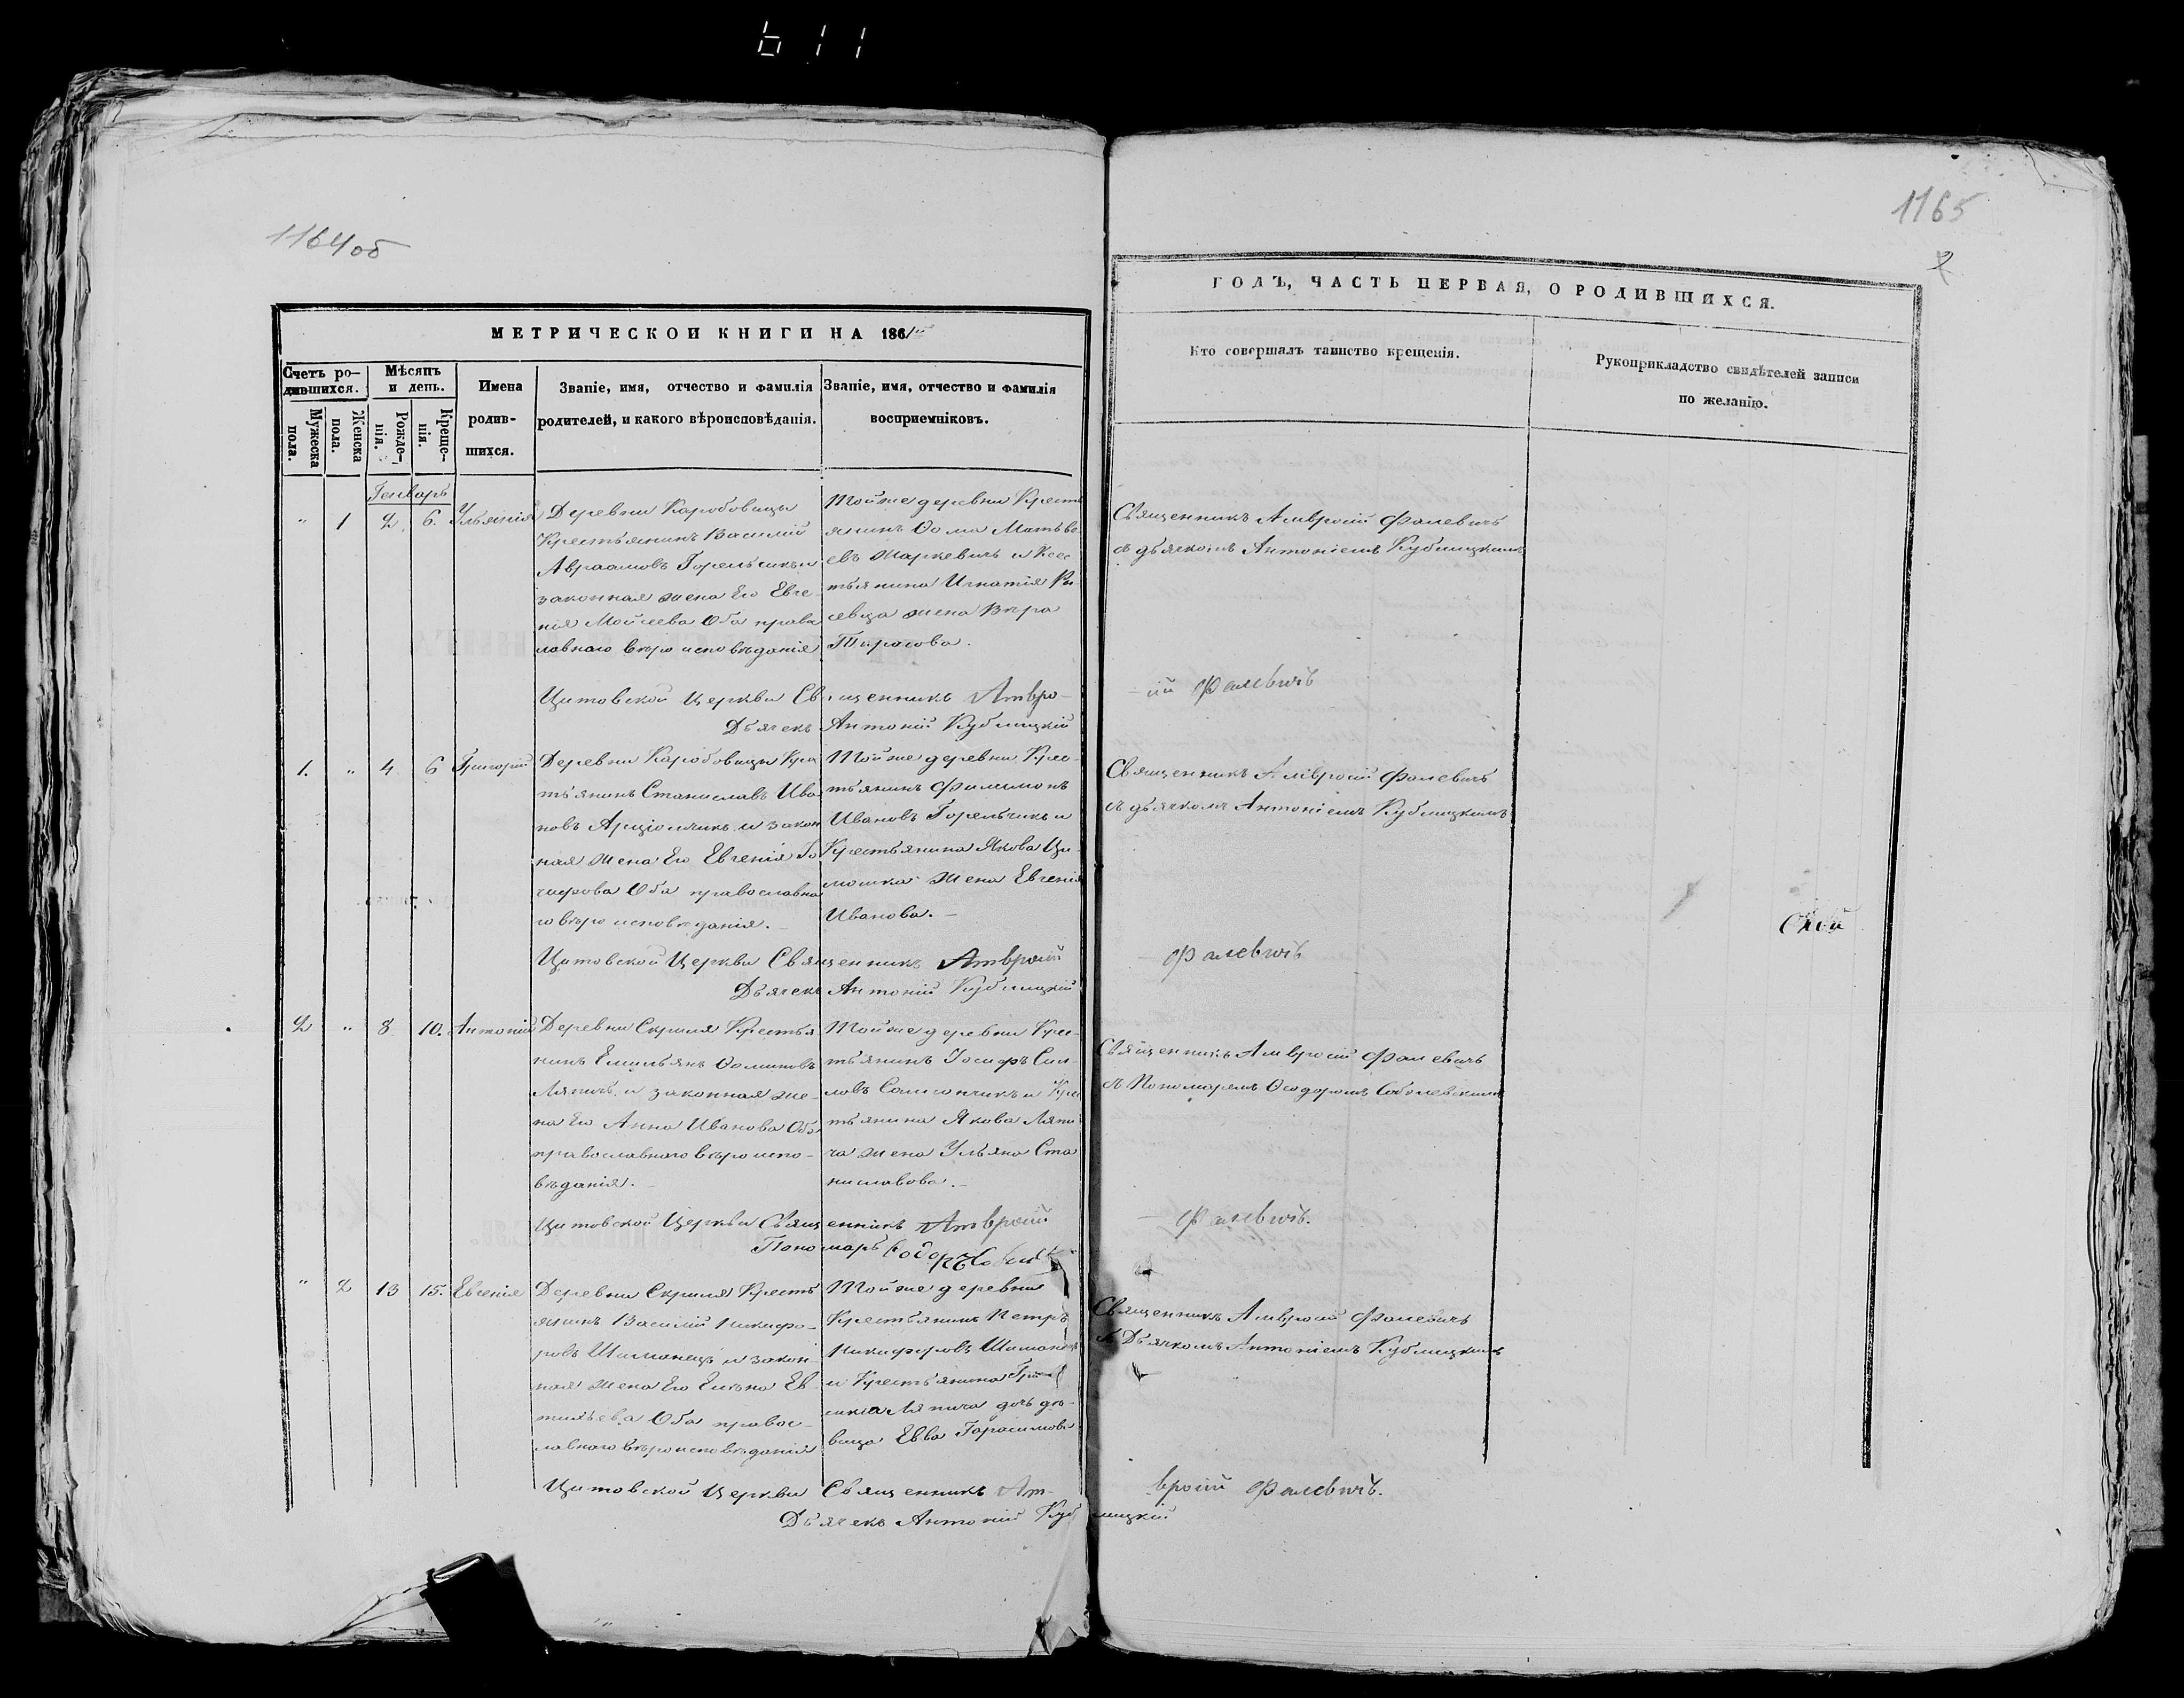 611
1164об
1165
2
МЕТРИЧЕСКОЙ КНИГИ НА 1861й
ГОДЪ, ЧАСТЬ ПЕРВАЯ, О РОДИВШИХСЯ.
Счетъ ро-
дившихся.
Мужеска
пола.
Женска
пола.
Мѣсяцъ
и день.
Рожде-
нія.
Креще-
нія.
Имена
родив-
шихся.
Званіе, имя, отчество и фамилія
родителей, и какого вѣроисповѣданія.
Званіе, имя, отчество и фамилія
восприемніковъ.
Кто совершалъ таинство крещенія.
Рукоприкладство свидѣтелей записи
по желанію.
Генварь
" 1 2. 6. Ульянія
Деревни Каробовицы
Крестьянинъ Василій
Авраамовъ Горельчикъ и
законная жена Его Евге-
нія Мойсеева Оба право
славнаго вѣроисповѣданія
Тойже деревни Кресть
янинъ Ѳома Матьве
евъ Маркевичь и Крес
тьянина Игнатія
жена Вѣра
Тарасова.
Священникъ Амвросій Фалевичь
съ дьячкомъ Антоніемъ Кублицкимъ
Цитовской Церкви Священникъ Амвро-
-сій Фалевичъ
Дьячекъ Антоній Кублицкій
1. " 4 6 Григорій
Деревни Каробовицы Крес
тьянинъ Станиславъ Ива
новъ и закон
ная жена Его Евгенія
Оба православна
го вѣроисповѣданія.
Тойже деревни Крес-
тьянинъ Филимонъ
Ивановъ Горельчикъ и
Крестьянина Якова Ци-
мошка жена Евгенія
Иванова. -
Священникъ Амвросій Фалевичь
съ дьячкомъ Антоніемъ Кублицкимъ
Цитовской Церкви Священникъ Амвросій
- Фалевичъ
Дьячекъ Антоній Кублицкій
2 " 8 10. Антоній
Деревни Скриля Крестья
нинъ Емильянъ Ѳоминовъ
Ляпичъ и законная же-
на Его Анна Иванова Оба
православнаго вѣроиспо-
вѣданія. -
Тойже деревни Крес-
тьянинъ Іосифъ
Самсончикъ и Крес
тьянина Якова Ляпи
ча жена Ульяна Ста
ниславова. -
Священникъ Амвросій Фалевичь
съ Пономаремъ Ѳеодоромъ Соболевскимъ
Цитовской Церкви Священникъ Амвросій
- Фалевичъ.
Пономарь
" 2 13 15. Евгенія
Деревни Скриля Кресть
янинъ Василій Никифо-
ровъ Шиманецъ и закон-
ная жена Его Елена Ев-
Оба правос-
лавнаго вѣроисповѣданія
Тойже деревни
Крестьянинъ Петръ
Никифоровъ Шиманецъ
и Крестьянина
Ляпича дочь дѣ-
вица Евва Гарасимова
Священникъ Амвросій Фалевичь
съ Дьячкомъ Антоніемъ Кублицкимъ
Цитовской Церкви Священникъ Ам-
вросій Фалевичъ.
Дьячекъ Антоній Кублицкій